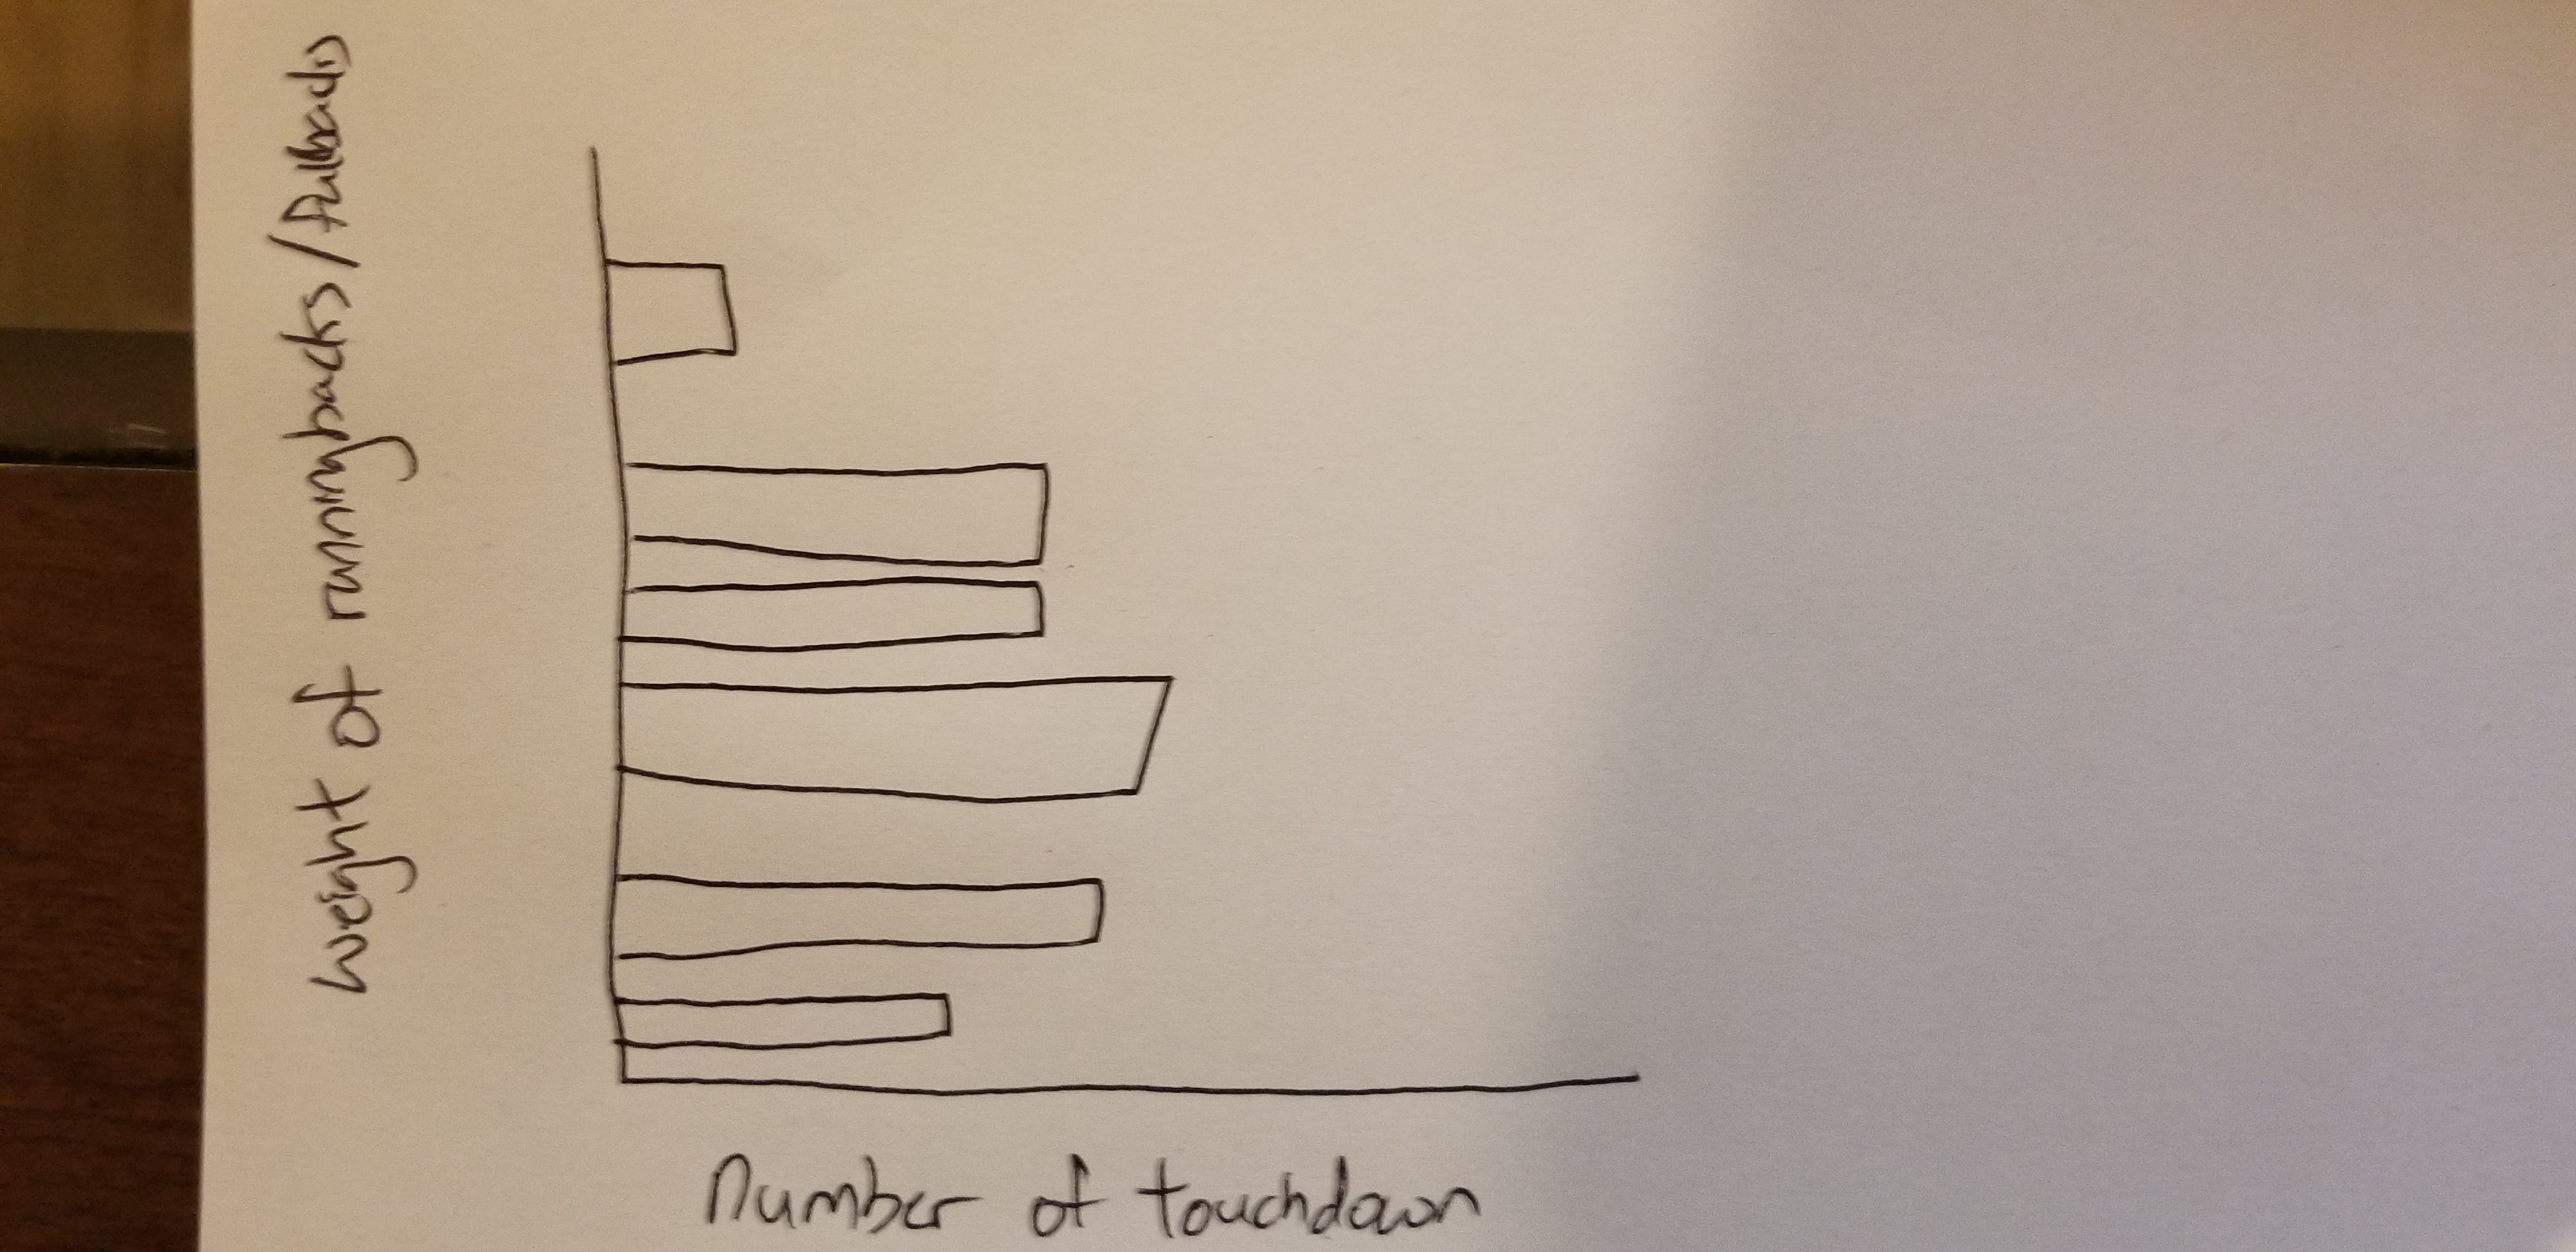 weight of runningbacks/fullbacks
number of touchdown